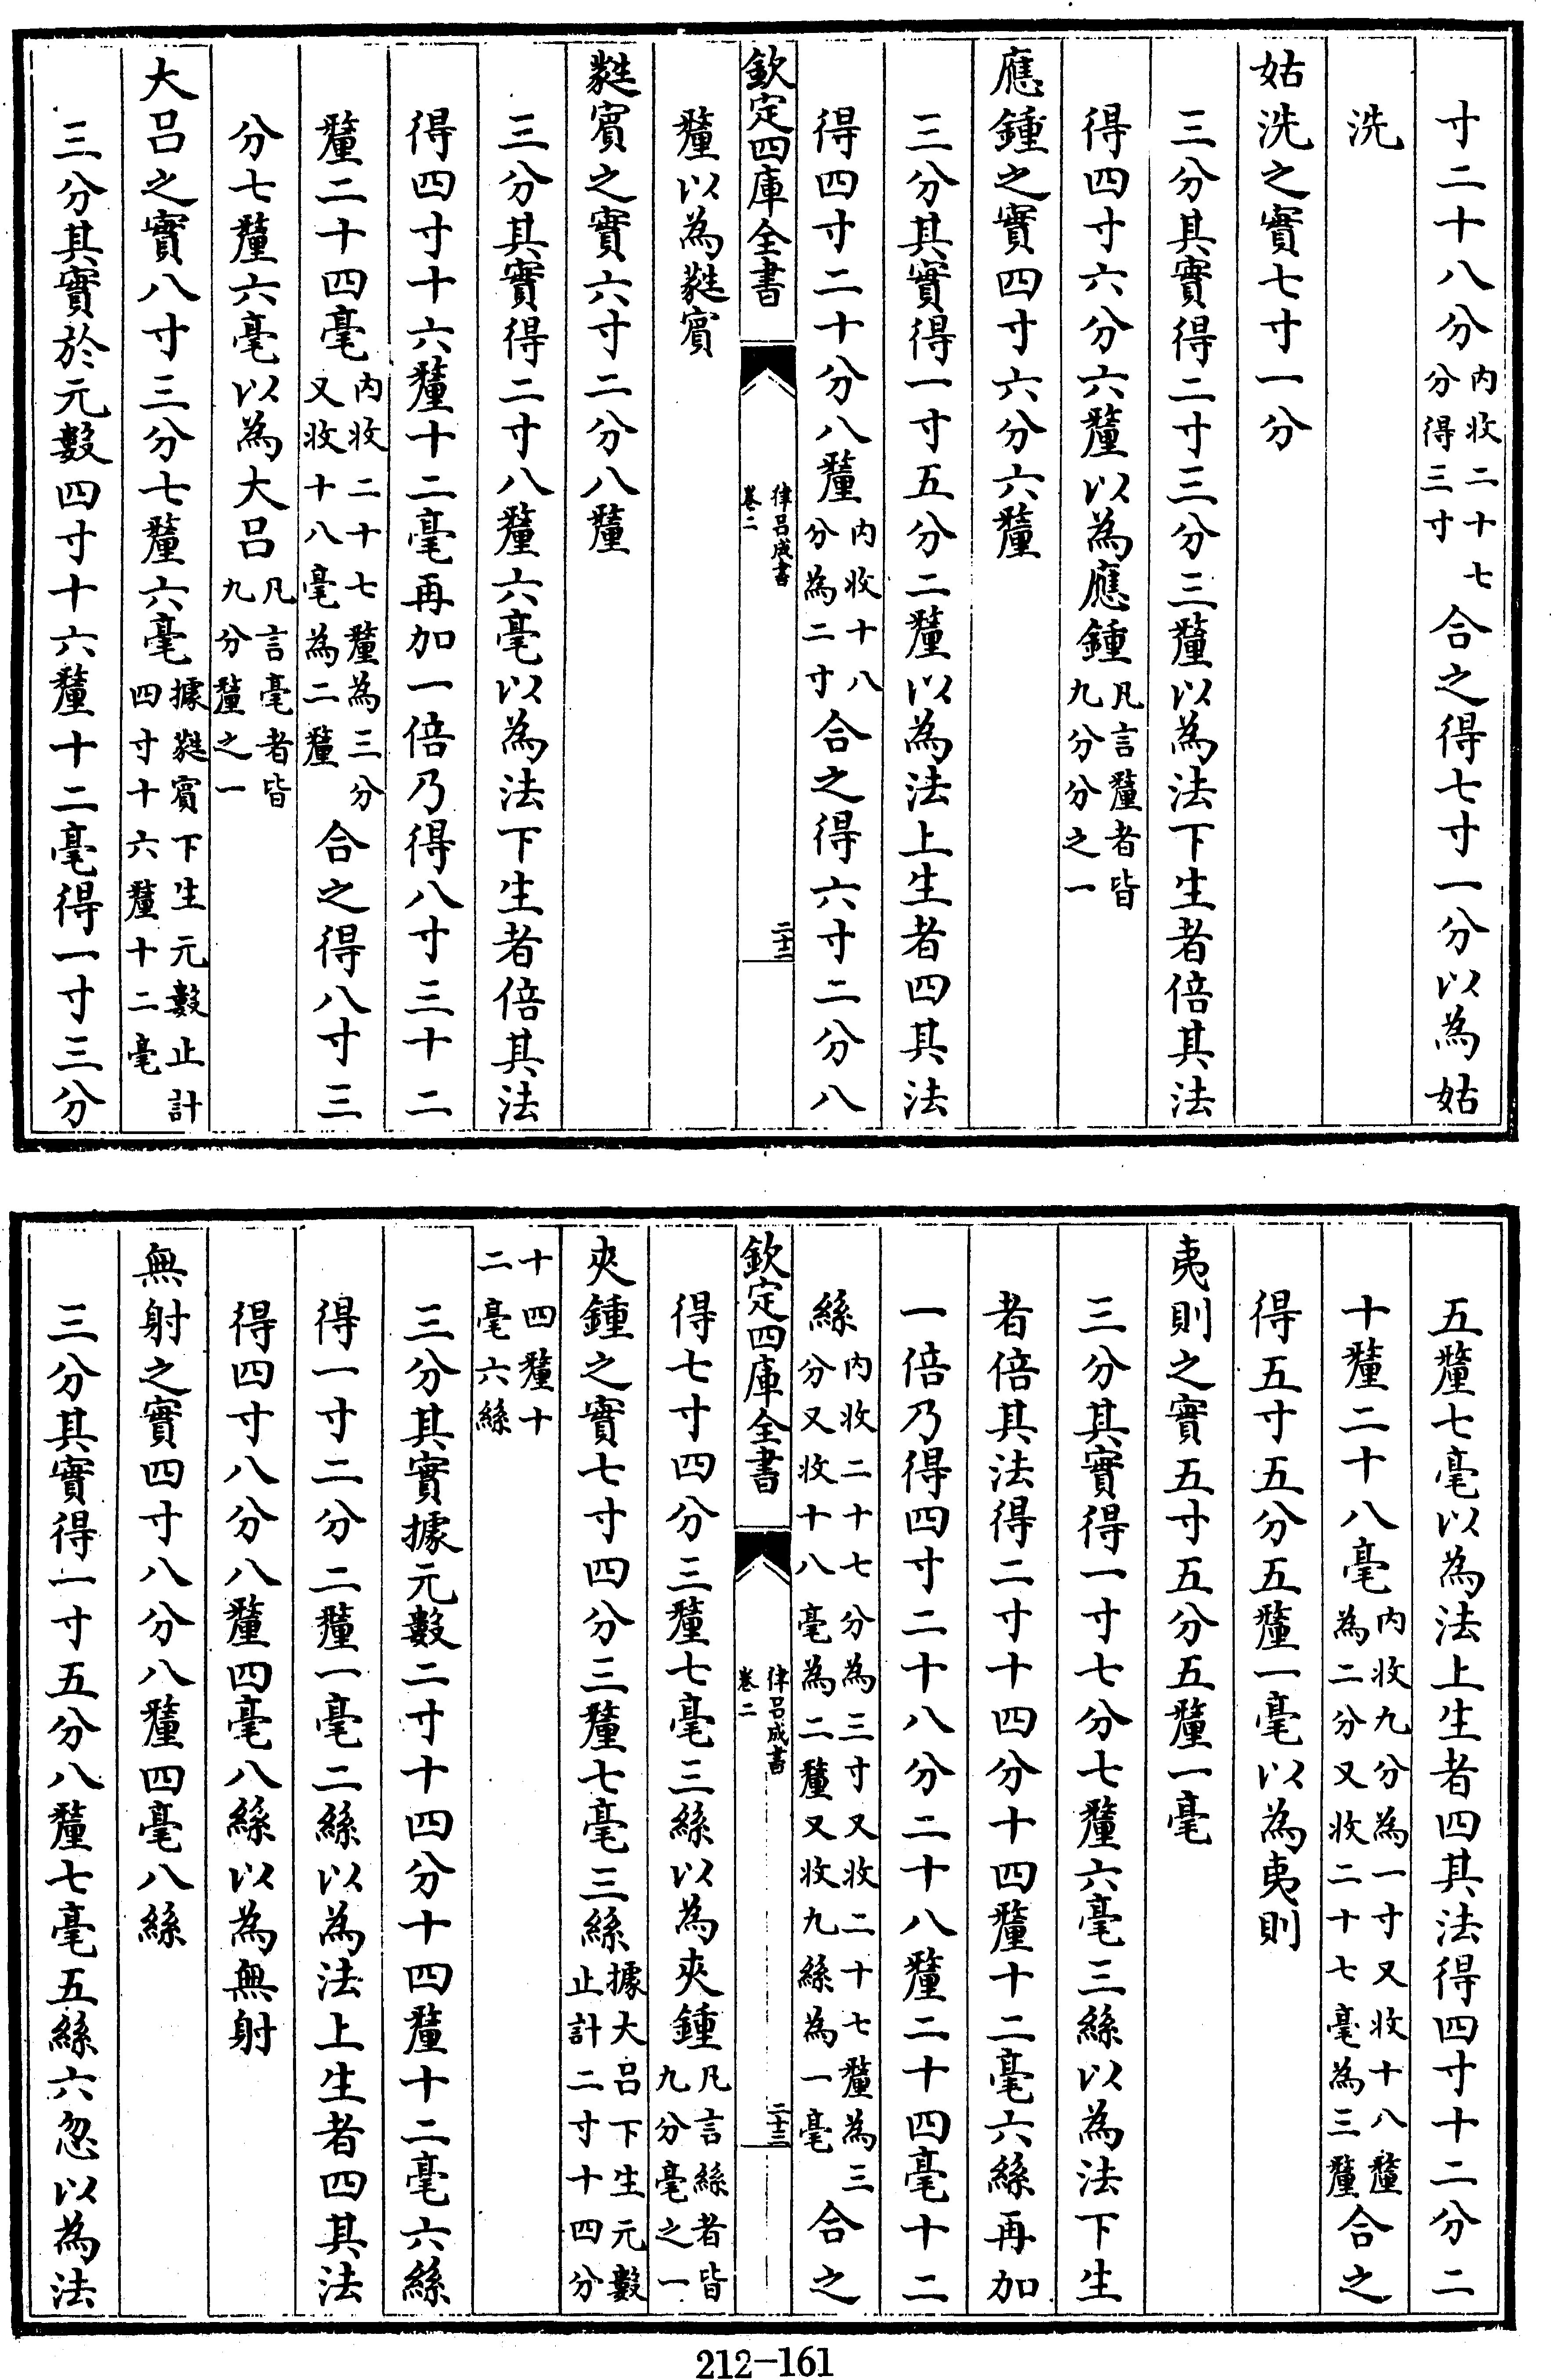 寸二十八分内收二十七分得三寸合之得七寸一分以為姑
洗
姑洗之實七寸一分
三分其實得二寸三分三釐以為法下生者倍其法
得四寸六分六釐以為應鍾凡言釐者皆九分分之一
應鍾之實四寸六分六釐
三分其實得一寸五分二釐以為法上生者四其法
得四寸二十分八釐内收十八分為二寸合之得六寸二分八
欽定四庫全書
律吕成書
卷二
二十二
釐以為蕤賓
蕤賓之實六寸二分八釐
三分其實得二寸八釐六毫以為法下生者倍其法
得四寸十六釐十二毫再加一倍乃得八寸三十二
釐二十四毫内收二十七釐為三分又收十八毫為二釐合之得八寸三
分七釐六毫以為大吕凡言毫者皆九分釐之一
大吕之實八寸三分七釐六毫據蕤賓下生元數止計四寸十六釐十二毫
三分其實於元數四寸十六釐十二毫得一寸三分
五釐七毫以為法上生者四其法得四寸十二分二
十釐二十八毫内收九分為一寸又收十八釐為二分又收二十七毫為三釐合之
得五寸五分五釐一毫以為夷則
夷則之實五寸五分五釐一毫
三分其實得一寸七分七釐六毫三絲以為法下生
者倍其法得二寸十四分十四釐十二毫六絲再加
一倍乃得四寸二十八分二十八釐二十四毫十二
絲内收二十七分為三寸又收二十七釐為三分又收十八毫為二釐又收九絲為一毫合之
欽定四庫全書
律吕成書
卷二
二十三
得七寸四分三釐七毫三絲以為夾鍾凡言絲者皆九分毫之一
夾鍾之實七寸四分三釐七毫三絲據大吕下生元數止計二寸十四分
十四釐十二毫六絲
三分其實據元數二寸十四分十四釐十二毫六絲
得一寸二分二釐一毫二絲以為法上生者四其法
得四寸八分八釐四毫八絲以為無射
無射之實四寸八分八釐四毫八絲
三分其實得一寸五分八釐七毫五絲六忽以為法
212-161